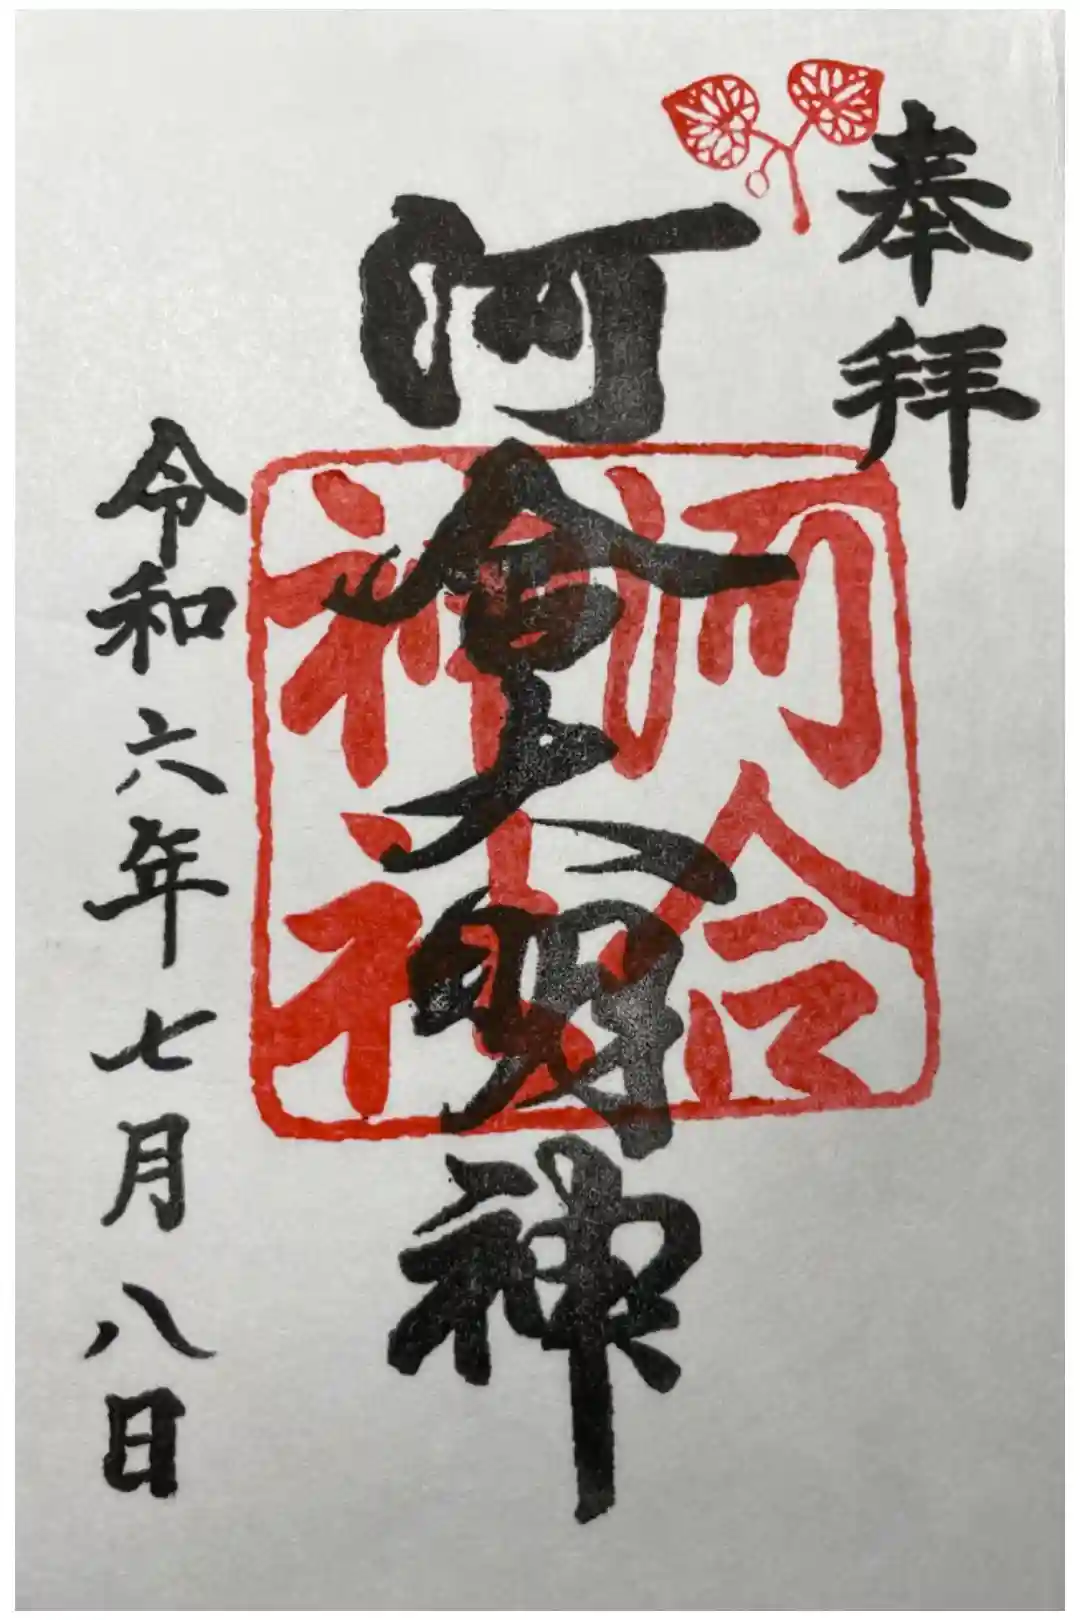 奉拝
河合神社
河會大明神
令和六年七月八日